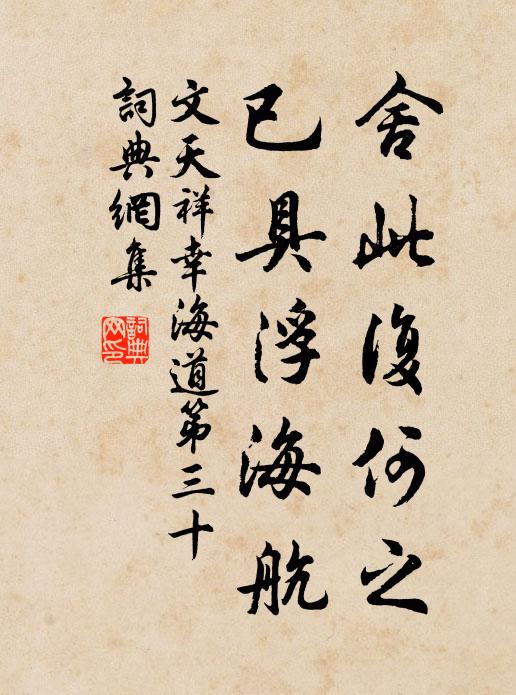 舍此復何之
已具浮海航
文天祥幸海道第三十
詞典網集
詞典網印